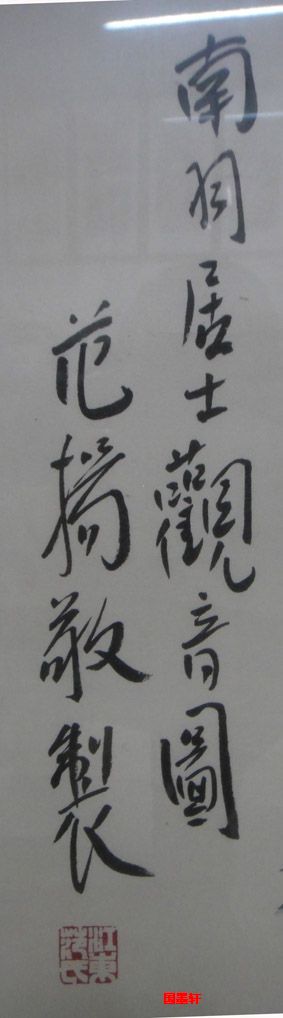 南羽居士觀音圖
范揚敬製
江東范氏
国墨轩